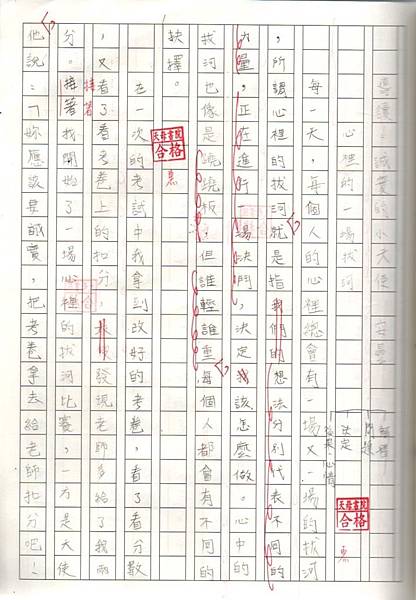 誠實的小天使
心裡的一場拔河
解釋
問題
決定
結果、心情
每一天，每個人的心裡總會有一場又一場的拔河
，所謂心裡的拔河就是指我們的想法分別代表不同的
力量，正在進行一場決鬥，決定我該怎麼做。心中的
拔河也像是蹺蹺板，但誰輕誰重，每個人都會有不同的
抉擇。
在一次的考試中我拿到改好的考卷，看了看分數
，又看了看考卷上的扣分，發現老師多給了我兩
接著
分。接著我開始了一場心裡的拔河比賽，一方是天使
他說：「妳應該要誠實，把考卷拿去給老師扣分吧！
天母書院
合格
天母書院
合格